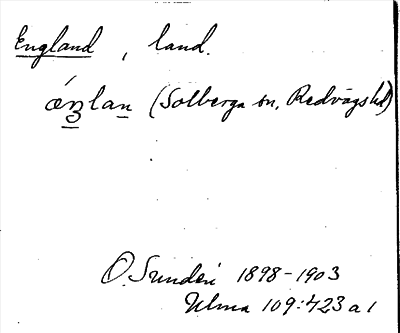 England, land.
ǽŋlan (Solberga sn, Redvägs hd)
O. Sundén 1898-1903
Ulma 109:423 a 1